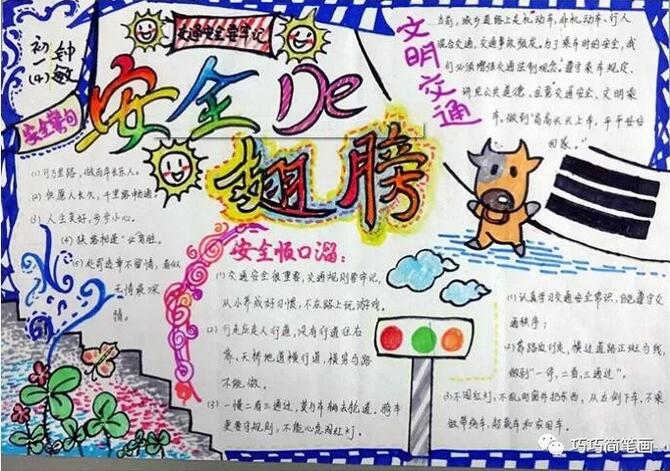 交通安全要牢记
初一(4)
钟敏
安全De
翅膀
安全警句
(2) 但愿人长久,千里路畅通。
(3) 人生美好,步步小心。
(4) 狭路相逢“让”者胜。
(5) 处罚违章不留情,看似
无情最深
情。
文明交通
当前,城乡道路上是机动车、非机动车、行人
混合交通,交通事故频发。为了乘车时的安全,我
们必须增强交通法制观念。遵守乘车规定、
讲究公共道德、注意交通安全、文明乘
车,做到“高高兴兴上车,平平安安
回家。”
安全顺口溜:
(1) 交通安全很重要,交通规则要牢记,
从小养成好习惯,不在路上玩游戏。
(2) 行走应走人行道,没有行道往右
靠,天桥地道横行道,横穿马路
不能做。
(3) 一慢二看三通过,莫与车辆去抢道。骑车
更要守规则,不能心急闯红灯。
(1) 认真学习交通安全常识,自觉遵守交
通秩序;
(2) 靠路边行走,横过道路走斑马线,
做到“一停,二看,三通过”。
(3) 不闯红灯,不乱向窗外扔东西,从右侧下车,不乘
坐带病车、超载车和农用车。
巧巧简笔画